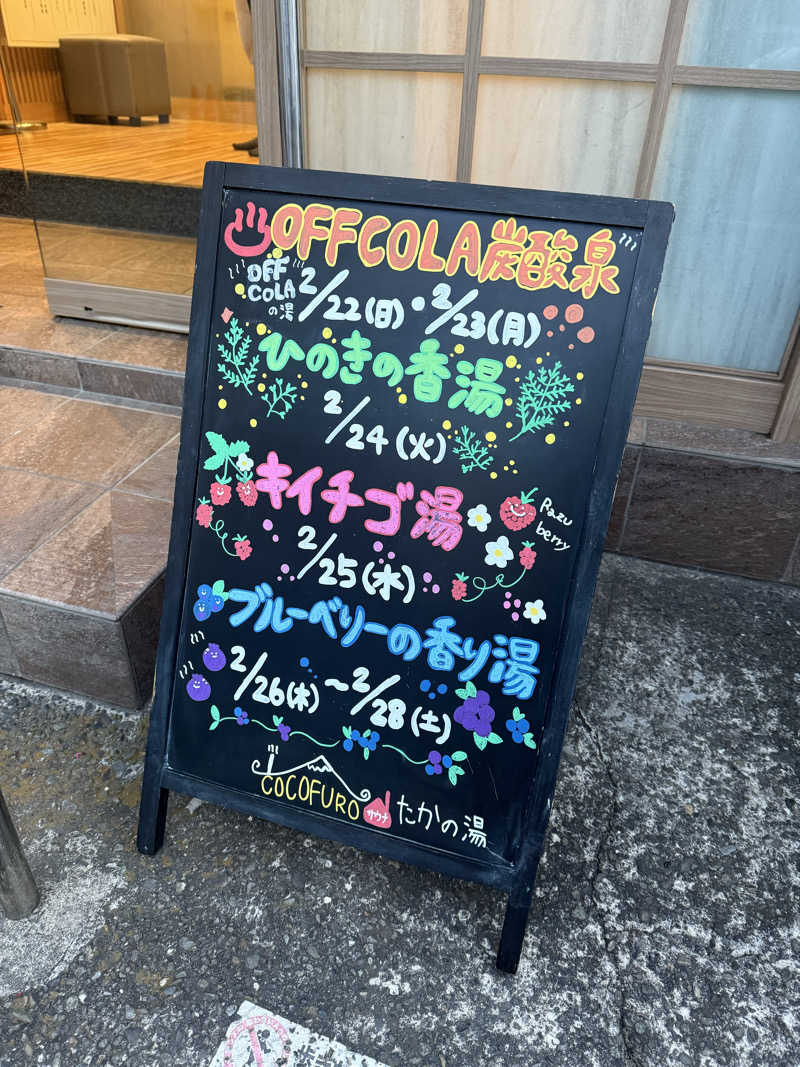 OFF COLA炭酸泉
OFF
COLA
の湯
2/22(日)・2/23(月)
ひのきの香湯
2/24(火)
キイチゴ湯
Razu
berry
2/25(水)
ブルーベリーの香り湯
2/26(木)〜2/28(土)
COCOFURO
サウナ
たかの湯